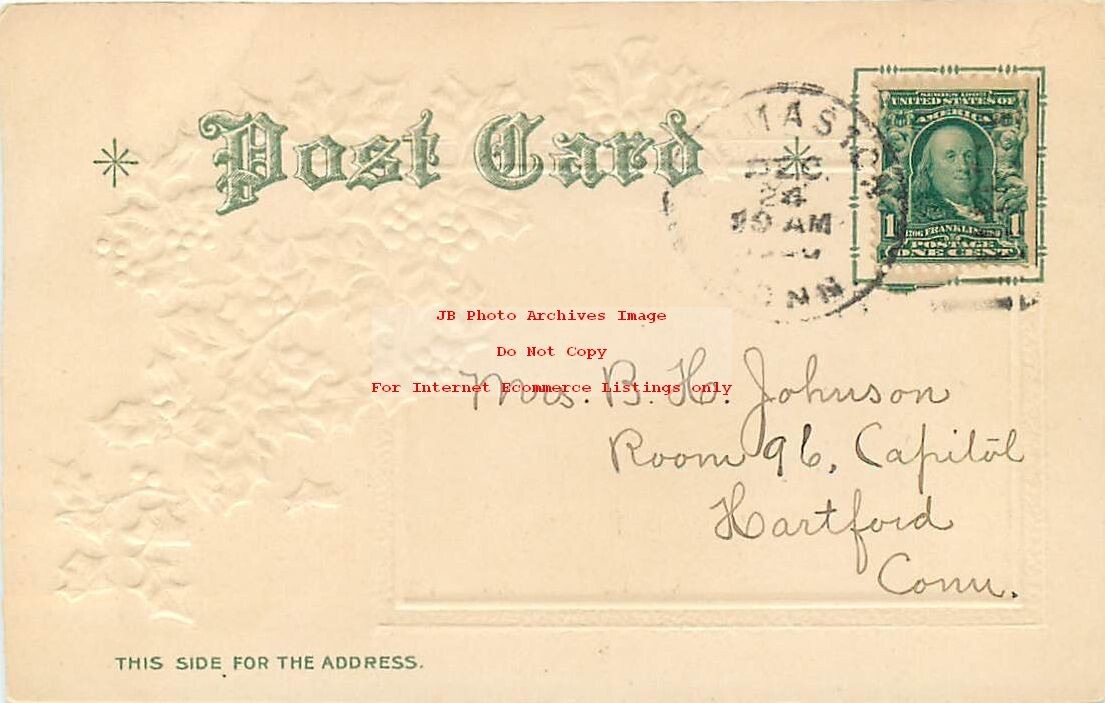 Post Card
DEC
24
AM
SERIES 1902
UNITED STATES OF
AMERICA
1 1
1706 FRANKLIN 1790
POSTAGE
ONE CENT
JB Photo Archives Image
Do Not Copy
For Internet Ecommerce Listings only
Mrs. B. H. Johnson
Room 96, Capitol
Hartford
Conn.
THIS SIDE FOR THE ADDRESS.